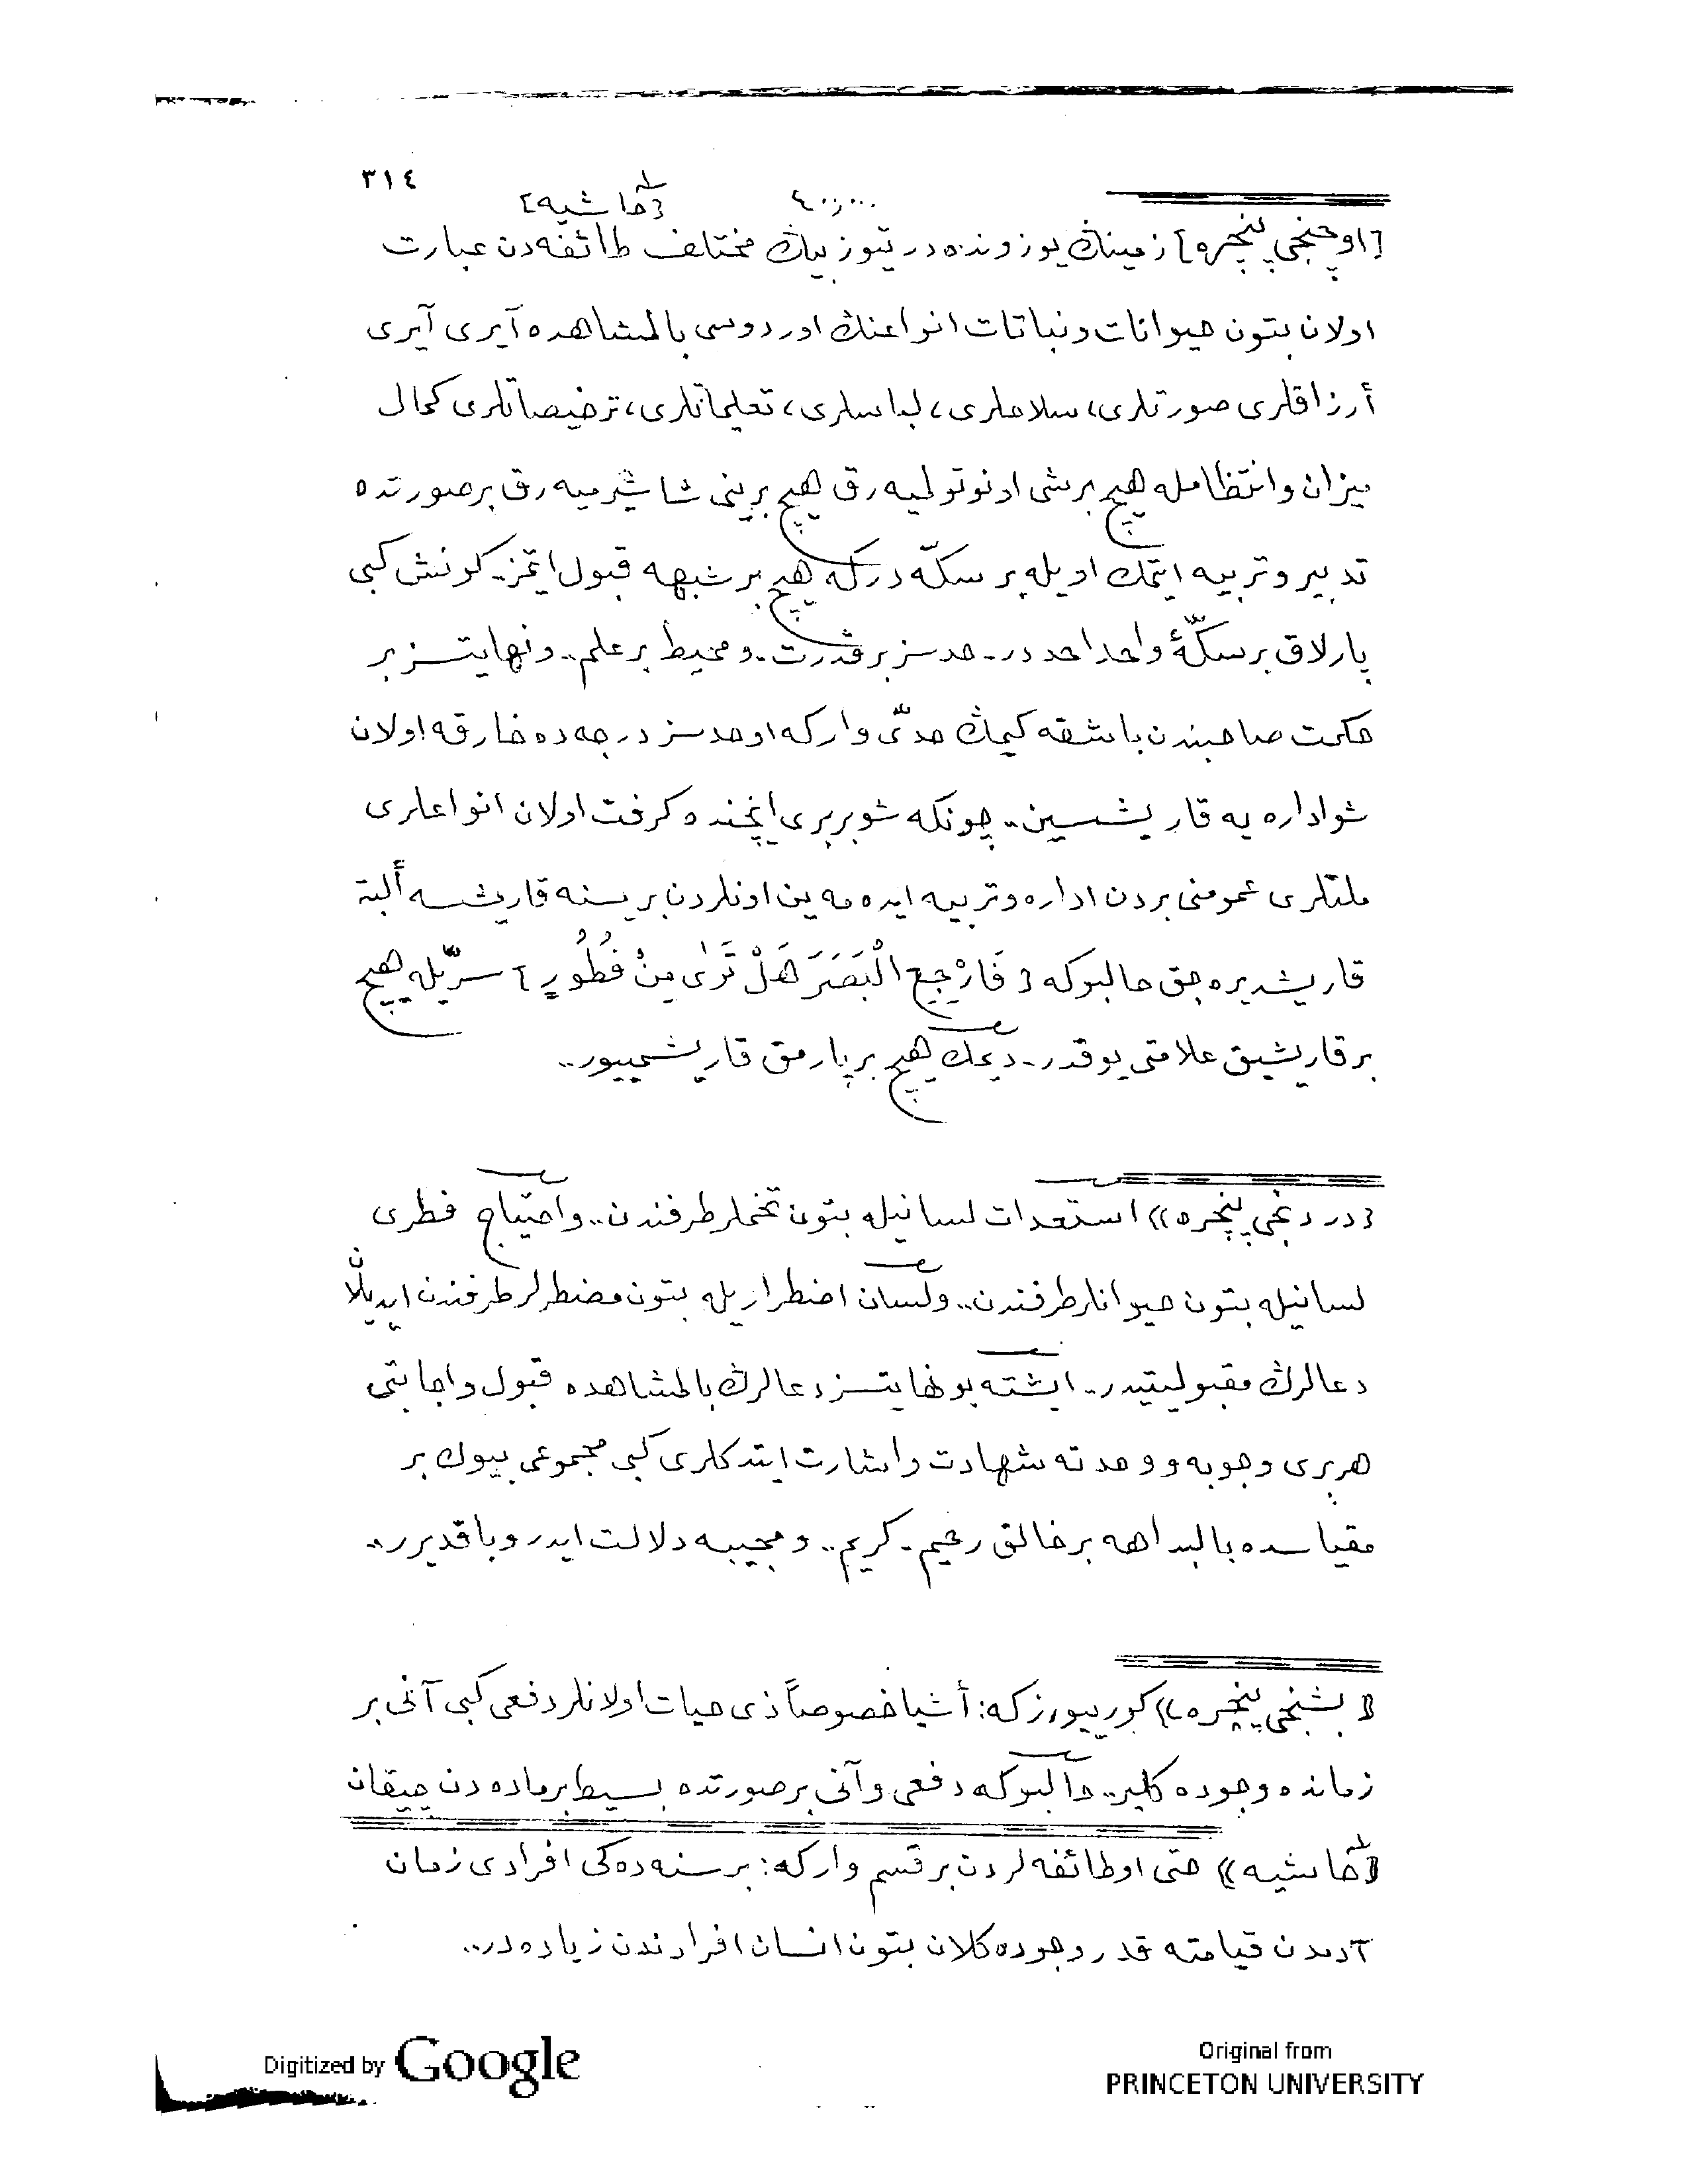 ٣١٤
٤٠٠,٠٠٠ [حاشيه]
[اوچنجی پنجره] زمينڭ يوزونده درتيوز بيڭ مختلف طائفه‌دن عبارت
اولان بتون حيوانات و نباتات انواعنڭ اوردوسی بالمشاهده آيری آيری
أرزاقلری صورتلری، سلاحلری، لباسلری، تعليماتلری، ترخيصاتلری كمال
ميزان و انتظامله هيچ برشی اونوتوليه‌رق هيچ برينی شاشيرميه‌رق برصورتده
تدبير و تربيه ايتمك اويله بر سكّه‌دركه هيچ بر شبهه قبول ايتمز.. كونش كبی
پارلاق بر سكّۀ واحد احددر.. حدسز بر قدرت.. و محيط بر علم.. و نهايتسز بر
حكمت صاحبندن باشقه كيمڭ حدّی واركه او حدسز درجه‌ده خارقه اولان
شو اداره‌يه قاريشسين.. چونكه شو بربری ايچنده كرفت اولان انواعلری
ملتلری عمومنی بردن اداره و تربيه ايده‌مه‌ين اونلردن بريسنه قاريشسه ألبته
قاريشديره‌جق حالبوكه [فَارْجِعِ الْبَصَرَ هَلْ تَرٰى مِنْ فُطُورٍ] سرّيله هيچ
بر قاريشيق علامتی يوقدر.. ديمك هيچ بر پارمق قاريشمييور..
[دردنجی پنجره» استعدات لسانيله بتون تخملر طرفندن.. و احتياج فطری
لسانيله بتون حيوانلر طرفندن.. و لسان اضطراريله بتون مضطرلر طرفندن ايديلن
دعالرڭ مقبوليتيدر.. ايشته بو نهايتسز دعالرڭ بالمشاهده قبول و اجابتی
هربری وجوبه و وحدته شهادت و اشارت ايتدكلری كبی مجموعی بيوك بر
مقياسده بالبداهه بر خالق رحيم.. كريم.. و مجيبه دلالت ايدر و باقديرر..
[بشنجی پنجره» كورييورزكه: أشيا خصوصاً ذی حيات اولانلر دفعی كبی آنی بر
زمانده وجوده كلير.. حالبوكه دفعی و آنی بر صورتده بسيط بر ماده‌دن چيقان
[حاشيه» حتی او طائفه‌لردن بر قسم واركه: بر سنه‌ده‌كی افرادی زمان
آدمدن قيامته قدر وجوده كلان بتون انسان افرادندن زياده‌در..
Digitized by Google
Original from
PRINCETON UNIVERSITY